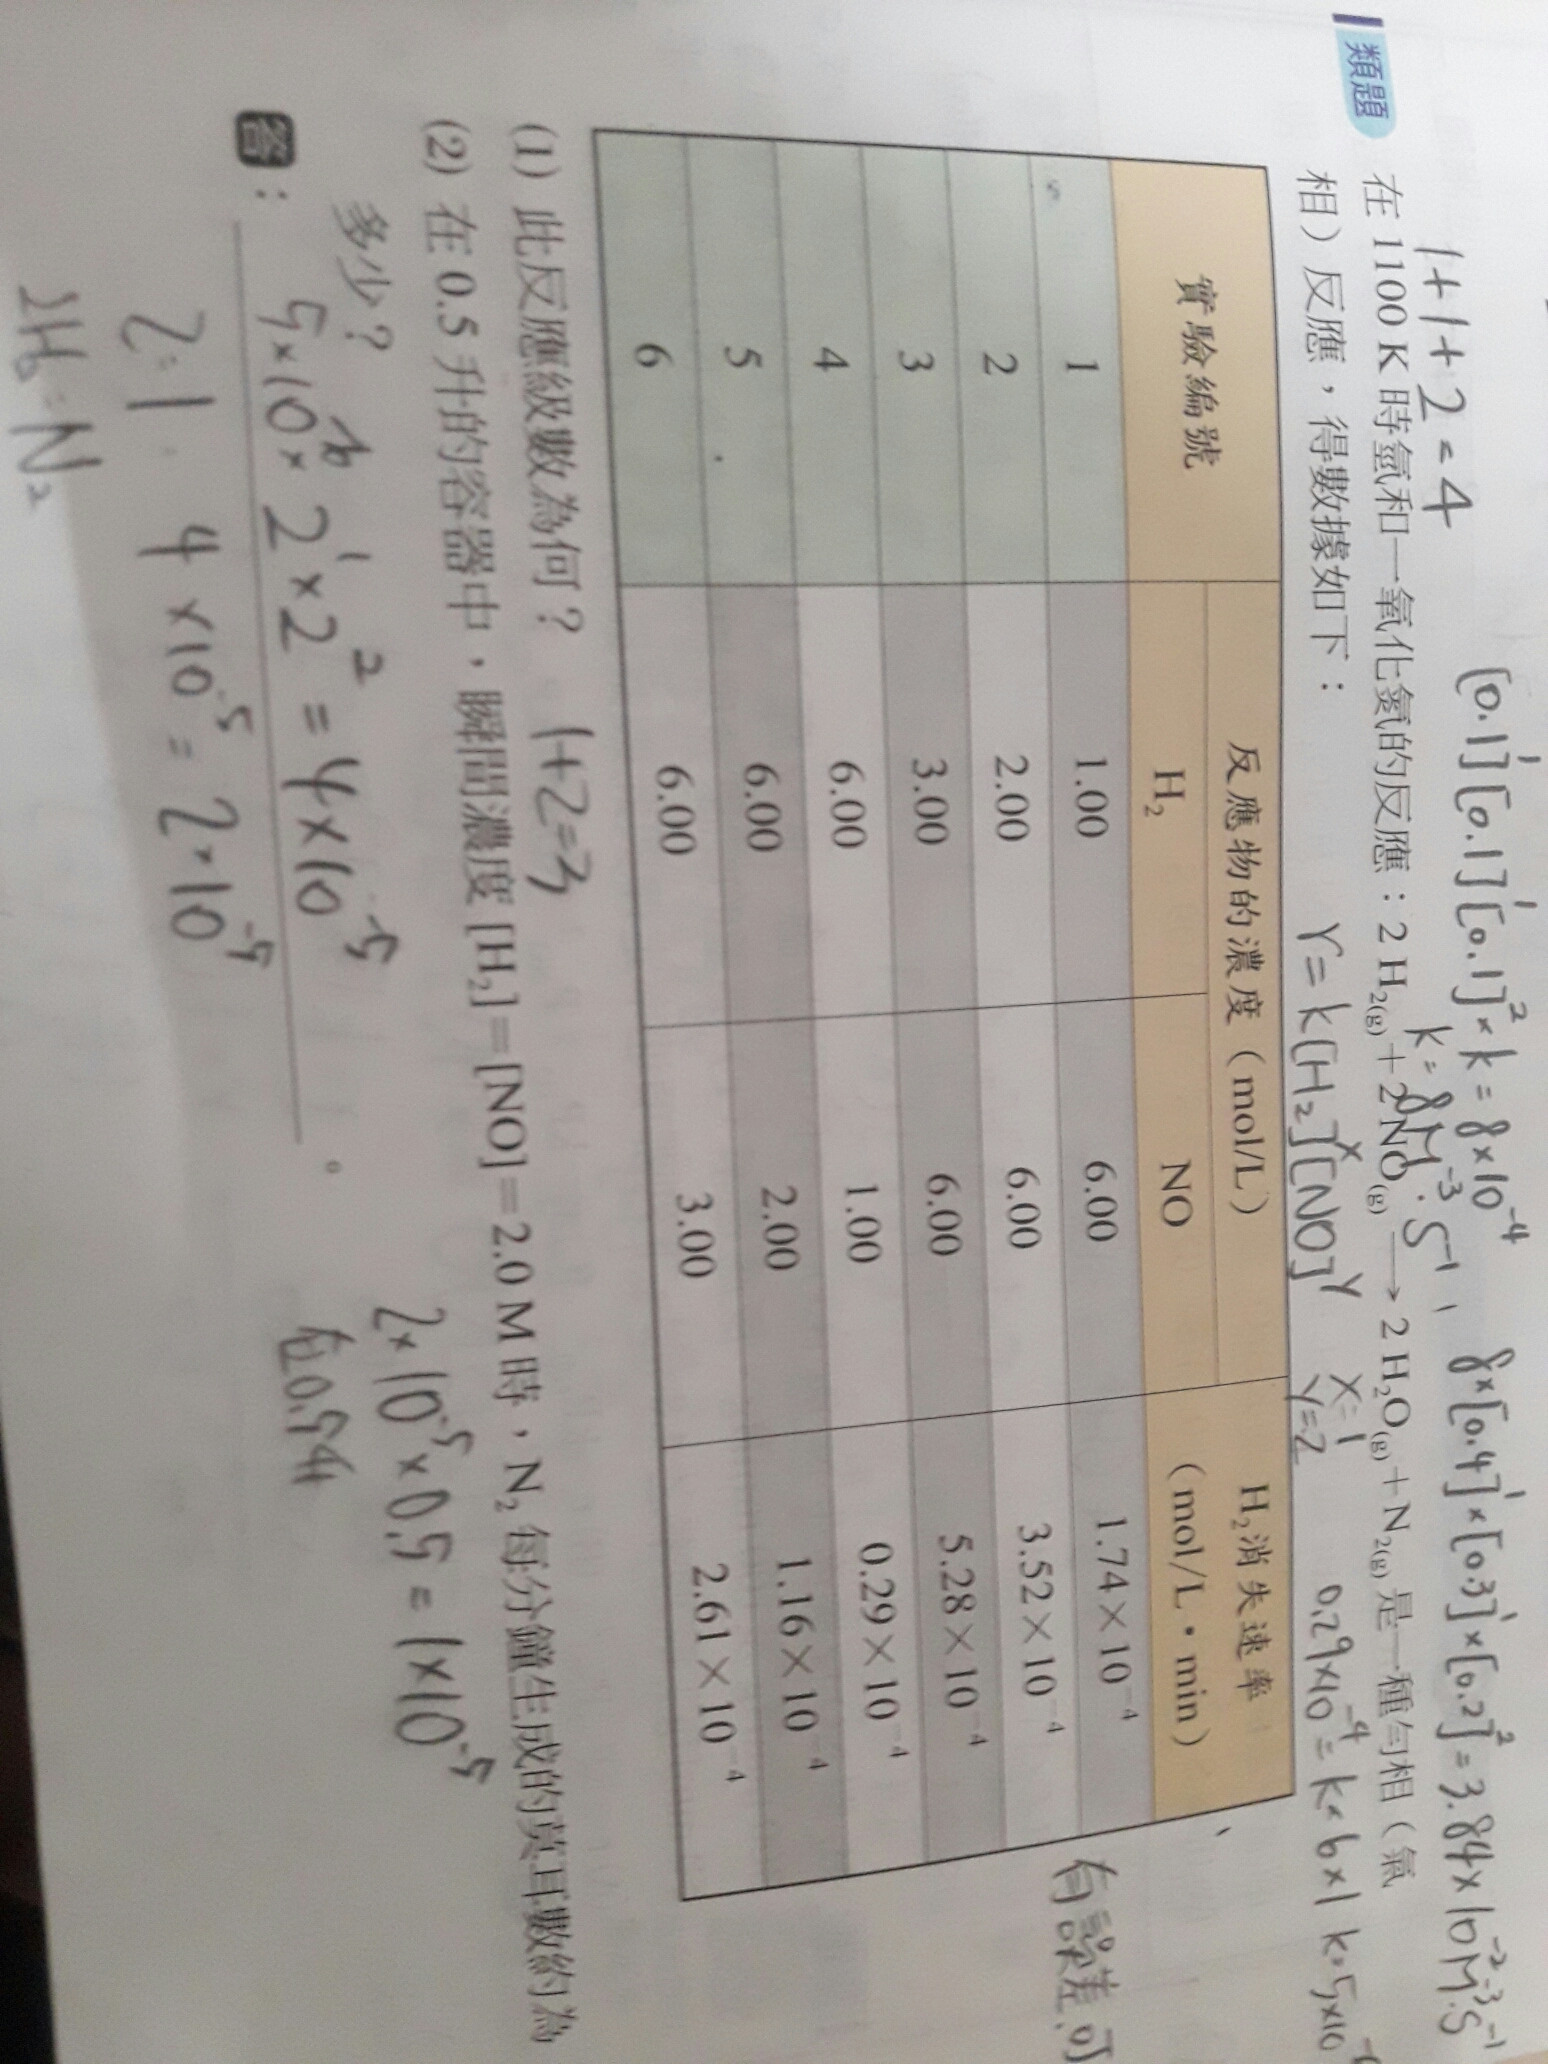 1+1+2=4
[0.1]¹[0.1]¹[0.1]²×k=8×10⁻⁴
k=8M⁻³·S⁻¹,
8×[0.4]¹×[0.3]¹×[0.2]²=3.84×10⁻²M·S⁻¹
類題 在 1100 K 時氫和一氧化氮的反應：2 H₂(g)＋2 NO(g) ⟶ 2 H₂O(g)＋N₂(g) 是一種勻相（氣
相）反應，得數據如下：
r=k[H₂]ˣ[NO]ʸ
x=1
y=2
0.29×10⁻⁴=k×6×1 k=5×10
實驗編號 反應物的濃度（mol/L） H₂消失速率
H₂ NO （mol/L・min）
1 1.00 6.00 1.74×10⁻⁴
2 2.00 6.00 3.52×10⁻⁴
3 3.00 6.00 5.28×10⁻⁴
4 6.00 1.00 0.29×10⁻⁴
5 6.00 2.00 1.16×10⁻⁴
6 6.00 3.00 2.61×10⁻⁴
有誤差,可
(1) 此反應級數為何？ 1+2=3
(2) 在 0.5 升的容器中，瞬間濃度 [H₂]＝[NO]＝2.0 M 時，N₂ 每分鐘生成的莫耳數約為
多少？
5×10⁻⁶×2¹×2²=4×10⁻⁵
2×10⁻⁵×0.5=1×10⁻⁵
在0.5升
答：
。
2:1 4×10⁻⁵=2×10⁻⁵
N₂